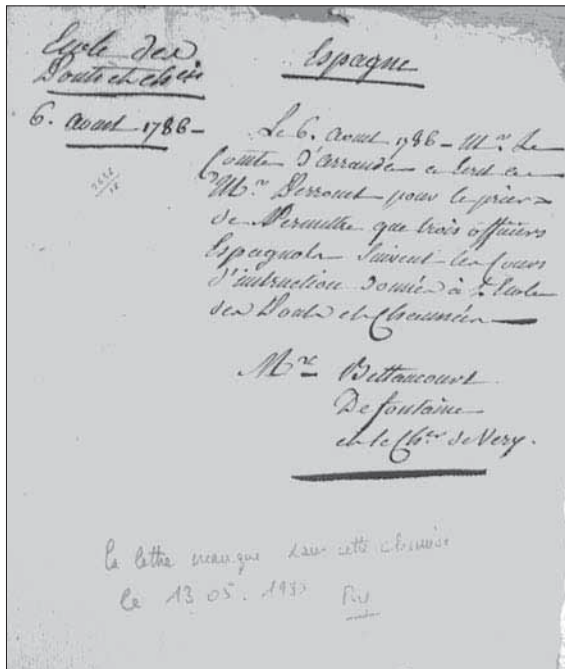 Ecole des
Ponts et ch.ées
6. aoust 1786 -
Espagne
Le 6. aoust 1786 - Mr. Le
Comte d'arranda a Ecrit a
Mr. Perronet pour le prier
de Permettre que trois officiers
Espagnols Suivent les Cours
d'instruction donnés à L'Ecole
des Ponts et Chaussées
Mrs Bettancourt
De fontaine
et le Cher. de Very.
la lettre manque dans cette chemise
le 13 05. 198